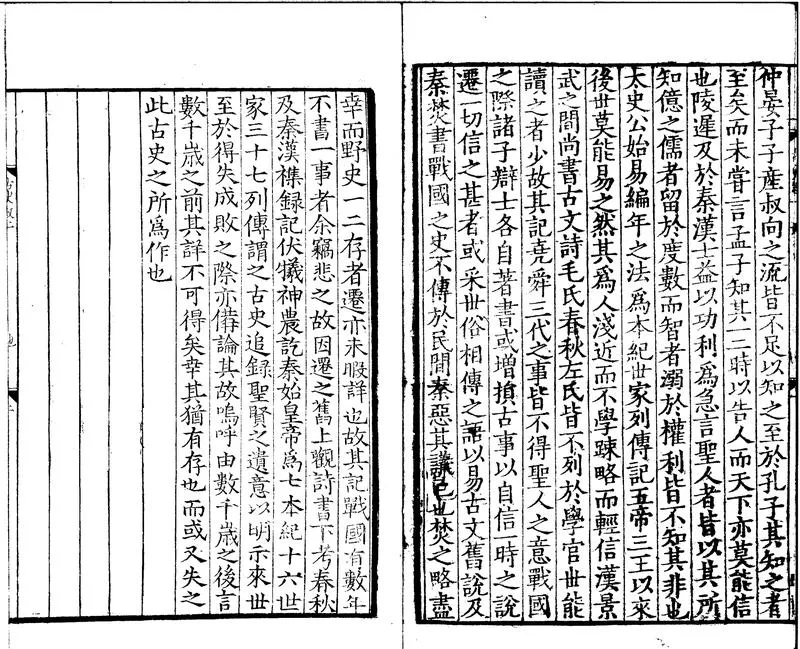 仲晏子子產叔向之流皆不足以知之至於孔子其知之者
至矣而未嘗言孟子知其一二時以告人而天下亦莫能信
也陵遲及於秦漢士益以功利為急言聖人者皆以其所
知億之儒者留於度數而智者溺於權利皆不知其非也
太史公始易編年之法為本紀世家列傳記五帝三王以來
後世莫能易之然其為人淺近而不學踈略而輕信漢景
武之間尚書古文詩毛氏春秋左氏皆不列於學官世能
讀之者少故其記堯舜三代之事皆不得聖人之意戰國
之際諸子辯士各自著書或增損古事以自信一時之說
遷一切信之甚者或采世俗相傳之語以易古文舊說及
秦焚書戰國之史不傳於民間秦惡其議己也焚之略盡
幸而野史一二存者遷亦未暇詳也故其記戰國有數年
不書一事者余竊悲之故因遷之舊上觀詩書下考春秋
及秦漢襍録記伏犧神農訖秦始皇帝為七本紀十六世
家三十七列傳謂之古史追録聖賢之遺意以明示來世
至於得失成敗之際亦備論其故嗚呼由數千歲之後言
數千歲之前其詳不可得矣幸其猶有存也而或又失之
此古史之所為作也